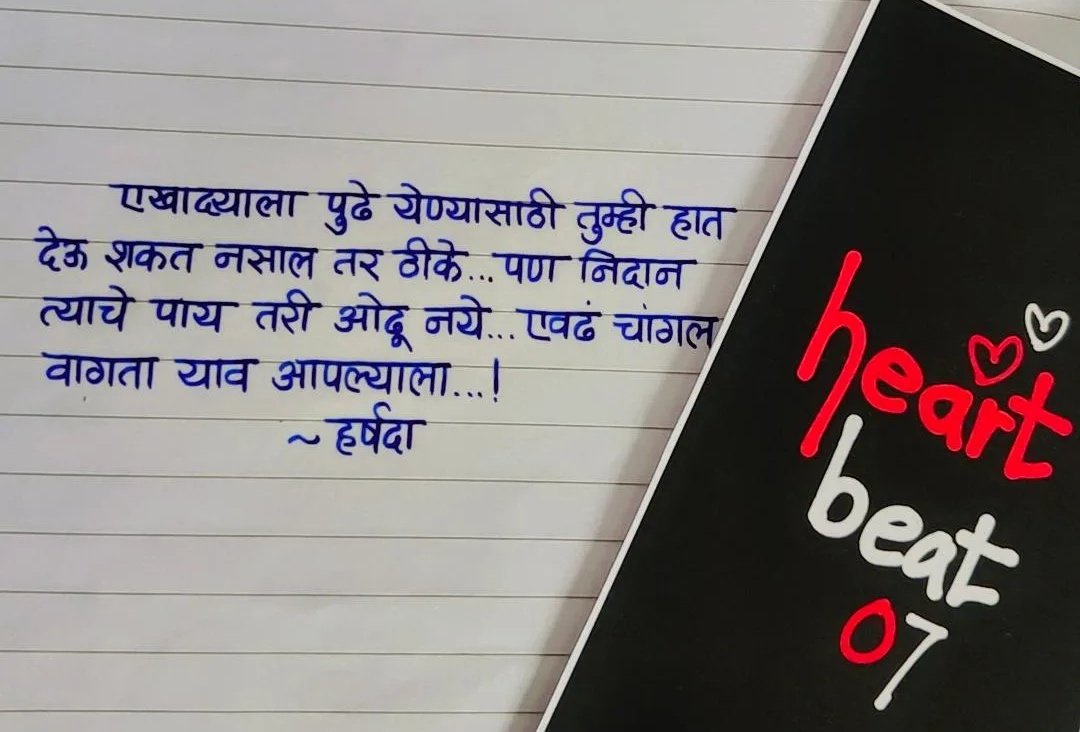 एखाद्याला पुढे येण्यासाठी तुम्ही हात
देऊ शकत नसाल तर ठीके...पण निदान
त्याचे पाय तरी ओढू नये...एवढं चांगल
वागता याव आपल्याला...!
~ हर्षदा
heart
beat
07